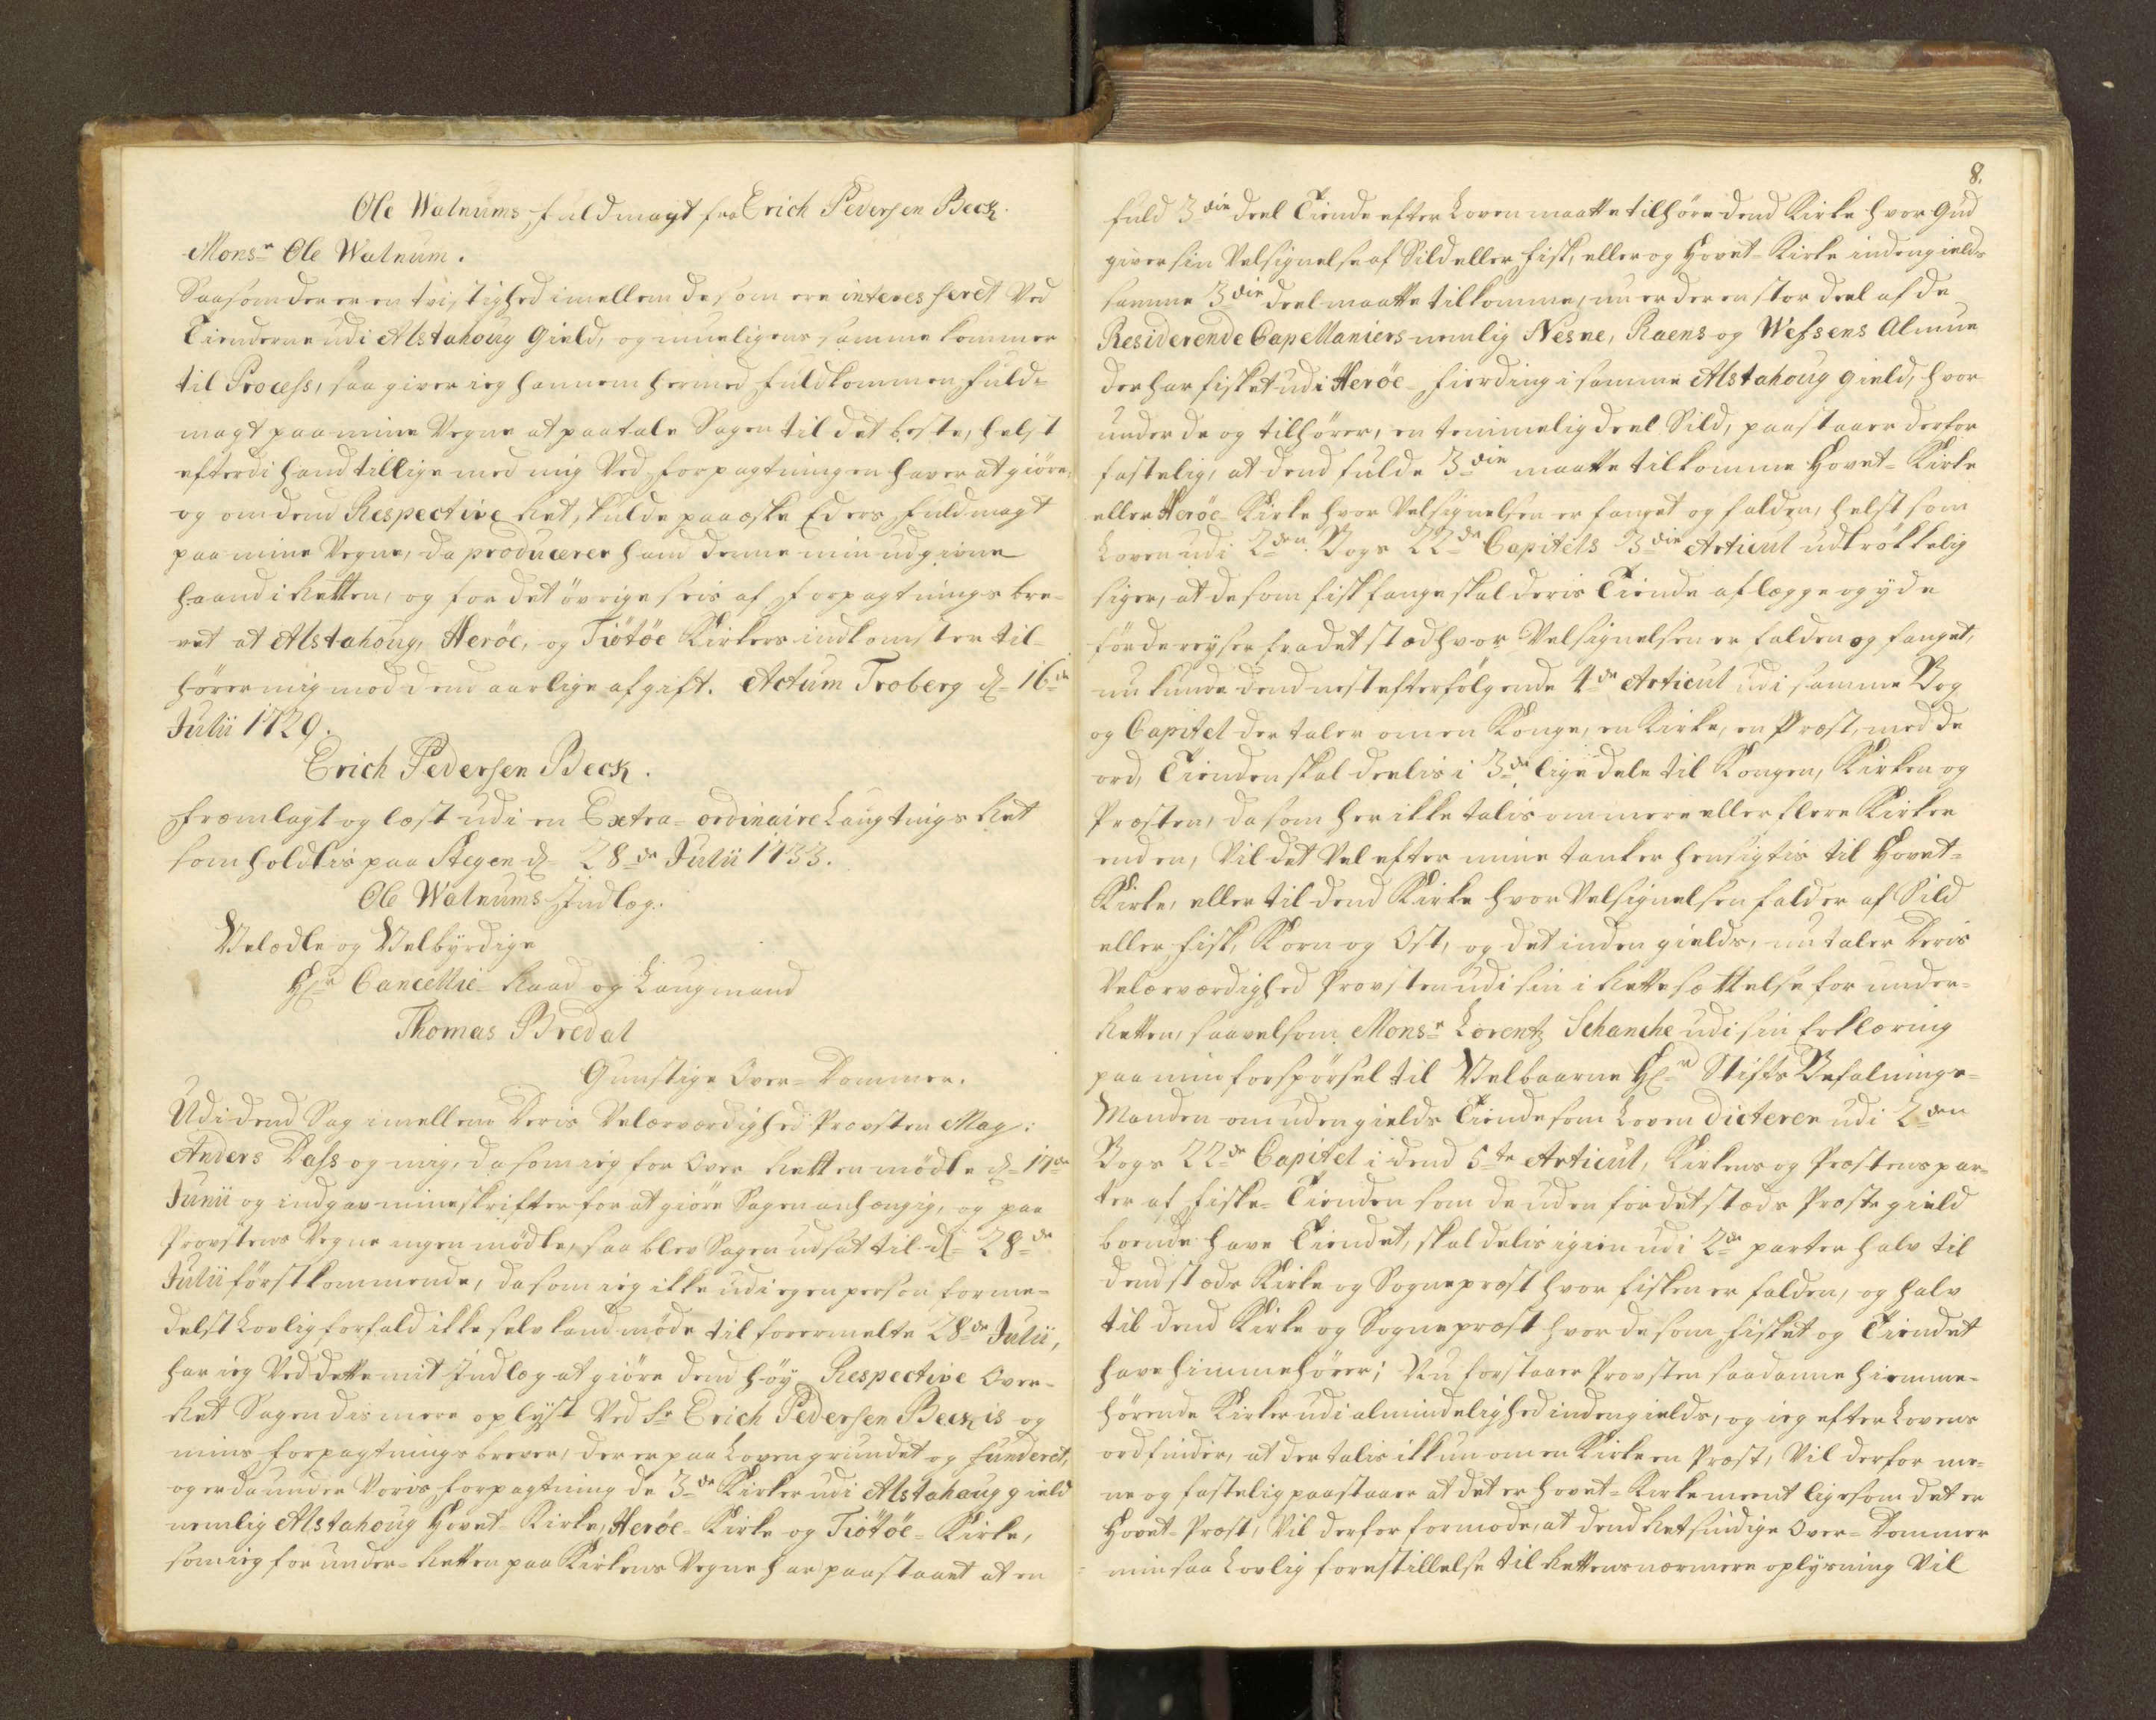 Ole Walnums Fuldmagt fra Erich Pedersen Beck.
Mons.r Ole Walnum.
Saasom der er en tvistighed imellem de som ere interesseret Ved
Tienderne udi Alstahoug Gield, og mueligens samme kommer
til Process, saa giver ieg hannem hermed fuldkommen Fuld=
magt paa mine Vegne at paatale Sagen til det beste, helst
efterdi hand tillige med mig Ved Forpagtningen haver at giöre,
og om dend Respective Ret skulde paaæske Eders Fuldmagt
paa mine Vegne, da producerer hand denne min udgivne
haand i Retten, og for det övrige seis af Forpagtnings bre=
vet at Alstahoug, Heröe, og Tiötöe Kirkers indkomster til=
hörer mig mod dend aarlige afgift. Actum Troberg d. 16de
Julii 1729.
Erich Pedersen Beck.
Fremlagt og læst udi en Extra-ordinaire Laugtings Ret
som holdtis paa Stegen d. 28de Julii 1733.
Ole Walnums Indlæg.
Velædle og Velbyrdige
Hr. Cancellie-Raad og Laugmand
Thomas Bredal
Gunstige Over-Dommer.
Udi dend Sag imellem Deris Velærværdighed Provsten Mag:
Anders Dass og mig, da som ieg for Over Retten mödte d. 17de
Junii og indgav mine skrifter for at giöre Sagen anhængig, og paa
Provstens Vegne ingen mödte, saa blev Sagen udsat til d. 28de
Julii först kommende, da som ieg ikke udi egen person forme=
delst Lovlig forfald ikke selv kand möde til forermelte 28de Julii,
har ieg Ved dette mit Indlæg at giöre dend höy Respective Over=
Ret Sagen dis mere oplyst Ved Sr Erich Pedersen Beckis og
mins Forpagtnings brever, der er paa Loven grundet og funderet,
og er da under Voris Forpagtning de 3de Kirker udi Alstahaug gield
nemlig Alstahoug Hovet-Kirke, Heröe-Kirke og Tiötöe-Kirke,
som ieg for under-Retten paa Kirkens Vegne har paastaaet at en
8.
fuld 3die deel Tiende efter Loven maatte tilhöre dend Kirke hvor Gud
giver sin Velsignelse af Sild eller Fisk, eller og Hovet-Kirke indengields
samme 3die deel maatte tilkomme, nu er der en stor deel af de
Residerende Capellaniers nemlig Nesne, Raens og Wefsens Almue
der har fisket udi Heröe-Fierding i samme Alstahoug gield, hvor
under de og tilhörer, en temmelig deel Sild, paastaaer derfor
fastelig, at dend fulde 3die maatte tilkomme Hovet-Kirke
eller Heröe-Kirke hvor Velsignelsen er fanget og falden, helst som
Loven udi 2den Bogs 22de Capitels 3die Articul udtrökkelig
siger, at de som fisk fange skal deris Tiende aflægge og yde
för de reyser fra det stæd hvor Velsignelsen er falden og fanget,
nu kunde dend nest efterfölgende 4de Articul udi samme Bog
og Capitel der taler om en Konge, en Kirke, en Præst, med de
ord, Tienden skal deelis i 3de lige dele til Kongen, Kirken og
Præsten, da som her ikke talis om mere eller flere Kirker
end en, Vil det Vel efter mine tanker hensigtis til Hovet=
Kirke, eller til dend Kirke hvor Velsignelsen falder af Sild
eller Fisk, Korn og Ost, og det inden gields, nu taler Deris
Velærværdighed Provsten udi sin i Rettesættelse for under=
Retten, saavelsom Mons.r Lorentz Schanche udi sin Erklæring
paa min forspörsel til Velbaarne Hr. Stifts Befalnings=
Manden om udengields Tiende som Loven dicterer udi 2den
Bogs 22de Capitel i dend 5te Articul, Kirkens og Præstens par=
ter af Fiske-Tienden som de uden for det stæds Præstegield
boende have Tiendet, skal delis igien udi 2de parter halv til
dend stæds Kirke og Sognepræst hvor fisken er falden, og halv
til dend Kirke og Sognepræst hvor de som fisket og Tiendet
have hiemmehörer; Nu forstaaer Provsten saadanne hiemme=
hörende Kirker udi almindelighed indengields, og ieg efter Lovens
ord finder, at der talis ikkun om en Kirke en Præst, Vil derfor me=
ne og fastelig paastaaer at det er Hovet-Kirke meent ligesom det er
Hovet-Præst, Vil derfor formode, at dend Retsindige Over-Dommer
min saa Lovlig forestillelse til Rettens nærmere oplysning Vil